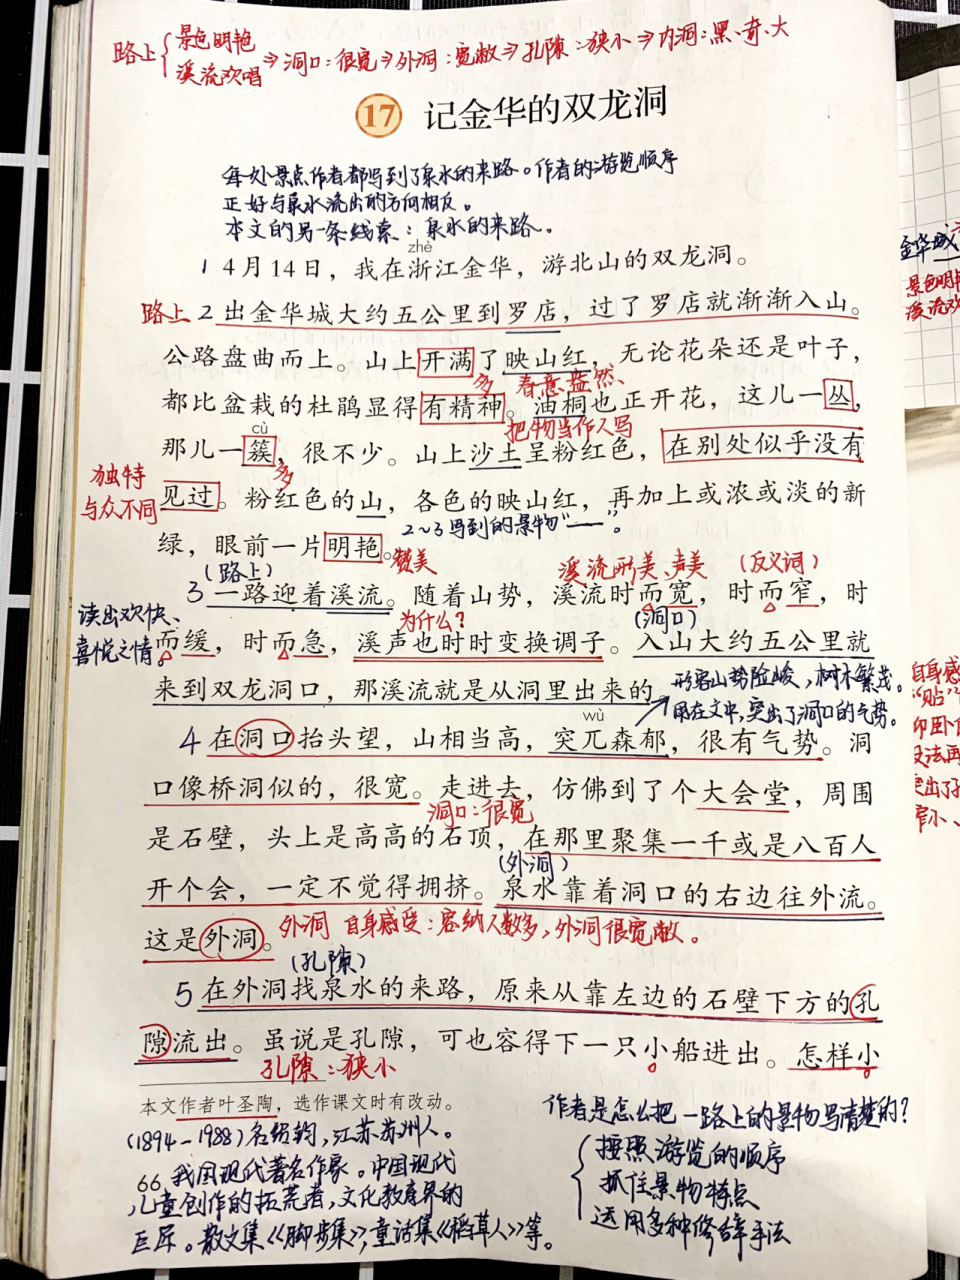 路上{景色明艳
溪流欢唱⇒洞口:很宽⇒外洞:宽敞⇒孔隙:狭小⇒内洞:黑、奇、大
17 记金华的双龙洞
每处景点作者都写到了泉水的来路。作者的游览顺序
正好与泉水流出的方向相反。
本文的另一条线索:泉水的来路。
zhè
1 4月14日，我在浙江金华，游北山的双龙洞。
路上 2 出金华城大约五公里到罗店，过了罗店就渐渐入山。
公路盘曲而上。山上开满了映山红，无论花朵还是叶子，
多 春意盎然、
都比盆栽的杜鹃显得有精神。油桐也正开花，这儿一丛，
cù 把物当作人写
那儿一簇，很不少。山上沙土呈粉红色，在别处似乎没有
独特
与众不同
多
见过。粉红色的山，各色的映山红，再加上或浓或淡的新
2~3写到的景物“——”。
绿，眼前一片明艳。赞美
(路上) 溪流形美、声美 (反义词)
3 一路迎着溪流。随着山势，溪流时而宽，时而窄，时
读出欢快、
喜悦之情
为什么? (洞口)
而缓，时而急，溪声也时时变换调子。入山大约五公里就
来到双龙洞口，那溪流就是从洞里出来的。
形容山势险峻，树木繁茂。
用在文中，突出了洞口的气势。
wù
4 在洞口抬头望，山相当高，突兀森郁，很有气势。洞
口像桥洞似的，很宽。走进去，仿佛到了个大会堂，周围
洞口:很宽
是石壁，头上是高高的石顶，在那里聚集一千或是八百人
(外洞)
开个会，一定不觉得拥挤。泉水靠着洞口的右边往外流。
这是外洞。外洞 自身感受:容纳人数多，外洞很宽敞。
(孔隙)
5 在外洞找泉水的来路，原来从靠左边的石壁下方的孔
隙流出。虽说是孔隙，可也容得下一只小船进出。怎样小
孔隙:狭小
本文作者叶圣陶，选作课文时有改动。
(1894-1988)名绍钧，江苏苏州人。
66 我国现代著名作家。中国现代
儿童创作的拓荒者，文化教育界的
巨匠。散文集《脚步集》，童话集《稻草人》等。
作者是怎么把一路上的景物写清楚的?
{按照游览的顺序
抓住景物特点
运用多种修辞手法
金华城
景色明艳
溪流欢
自身感
“贴”